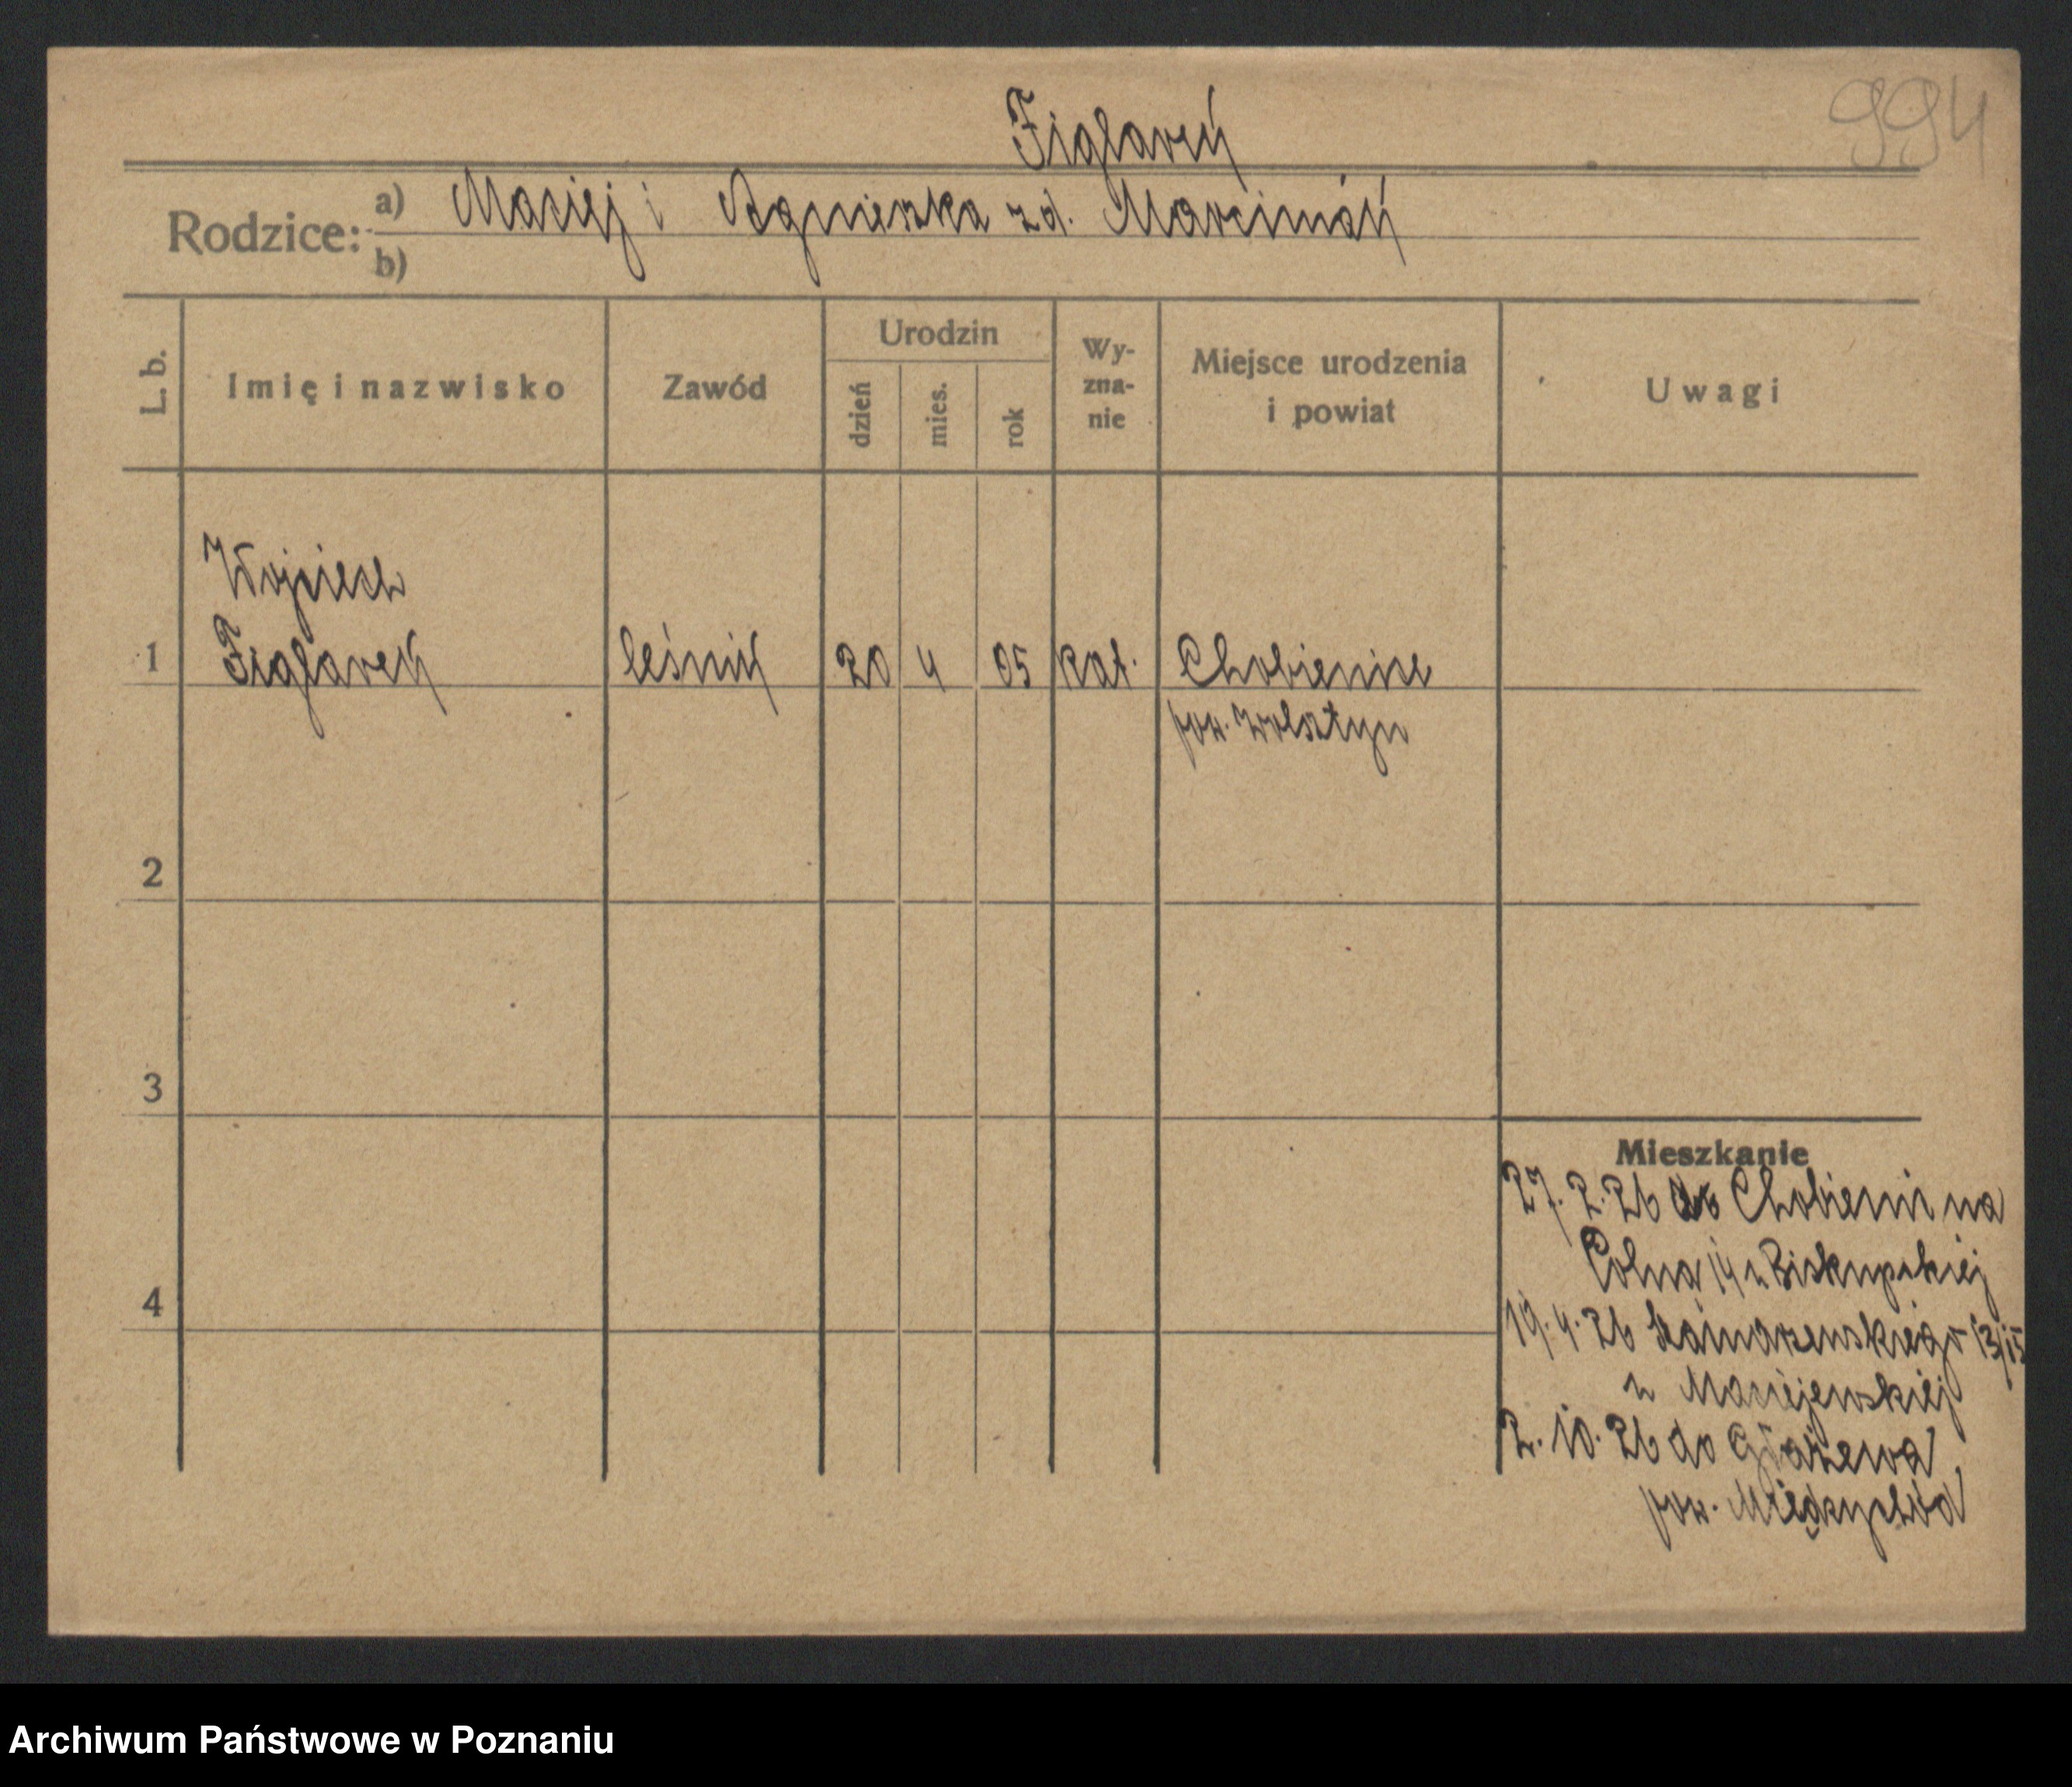 994
Figlarek
Rodzice: a) Maciej i Agnieszka zd. Marciniak
b)
L. b.
Imię i nazwisko
Zawód
Urodzin
dzień
mies.
rok
Wy-
zna-
nie
Miejsce urodzenia
i powiat
Uwagi
Wojciech
1 Figlarek leśnik 20 4 05 kat. Chobienice
pow. Wolsztyn
2
3
4
Mieszkanie
27. 2. 26 do Chobienic na
Polna 14 u Biskupskiej
19. 4. 26 13/15
u Maciejewskiej
2. 10. 26 do Głażewa
pow. Międzychód
Archiwum Państwowe w Poznaniu